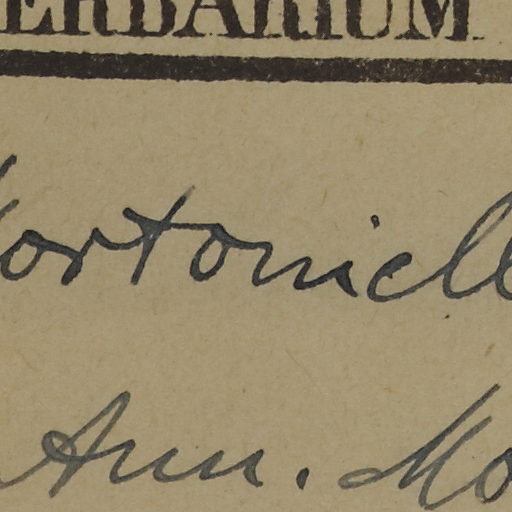 ERBARIUM
ortoniell
Ann. Mo